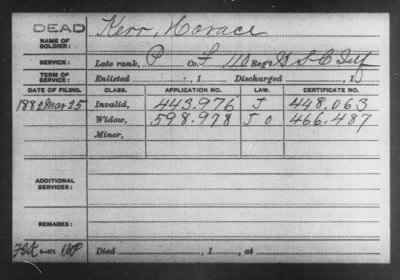 DEAD
NAME OF SOLDIER: Kerr, Horace
SERVICE: Late rank, P Co. F 110 Reg't U S C Inf
TERM OF SERVICE: Enlisted , 1 Discharged , 1
DATE OF FILING. CLASS. APPLICATION NO. LAW. CERTIFICATE NO.
1882 Mar 25 Invalid, 443.976 J 448,063
Widow, 598.978 J O 466.487
Minor,
ADDITIONAL SERVICES:
REMARKS:
Died , 1 , at